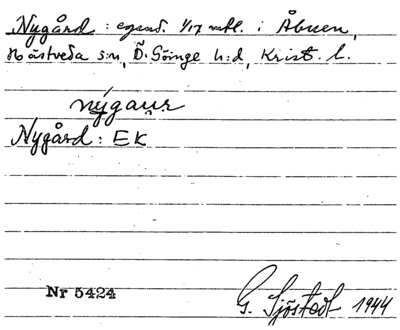 Nygård: egend. 1/17 mtl. i Åbuen,
Hästveda s:n, Ö. Göinge h:d, Krist. l.
nýgaur
Nygård: EK
Nr 5424
G. Sjöstedt 1944